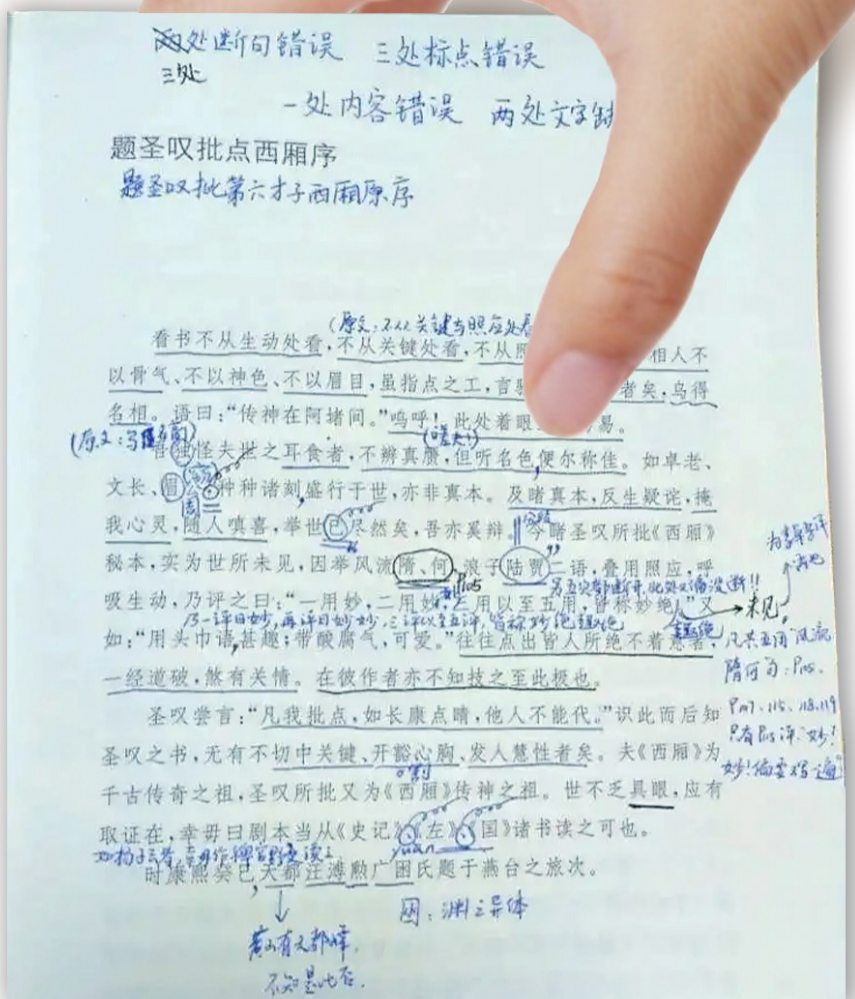 两处断句错误 三处标点错误
三处
一处内容错误 两处文字
题圣叹批点西厢序
题圣叹批第六才子西厢原序
(原文:不从关键与照应处看
看书不从生动处看,不从关键处看,不从照 相人不
以骨气、不以神色、不以眉目,虽指点之工,言 者矣,乌得
名相。语曰:“传神在阿堵间。”呜呼!此处着眼 易。
(原文:
吾独怪夫世之耳食者,不辨真赝,但听名色,便尔称佳。如卓老、
文长、眉 种种诸刻,盛行于世,亦非真本。及睹真本,反生疑诧,掩
我心灵,随人嗔喜,举世已尽然矣,吾亦奚辩。今睹圣叹所批《西厢》
秘本,实为世所未见,因举风流隋、何,浪子陆贾二语,叠用照应,呼
吸生动,乃评之曰:“一用妙,二用妙,三用以至五用,皆称妙绝。”又
乃一评曰妙,再评曰妙妙,三评以至五评,皆称妙绝
如:“用头巾语,甚趣;带酸腐气,可爱。”往往点出皆人所绝不着意者,
一经道破,煞有关情。在彼作者亦不知技之至此极也。
圣叹尝言:“凡我批点,如长康点睛,他人不能代。”识此而后知
圣叹之书,无有不切中关键、开豁心胸、发人慧性者矣。夫《西厢》为
千古传奇之祖,圣叹所批又为《西厢》传神之祖。世不乏具眼,应有
取证在,幸毋曰剧本当从《史记》《左》《国》诸书读之可也。
时康熙癸巳,天都汪溥勲广囦氏题于燕台之旅次。
囦:渊之异体
黄山有天都峰,
不知是此否。
未见
凡共五用“风流
隋何”句:P105、
P107、115、118、119
只有P115评“妙!
妙!